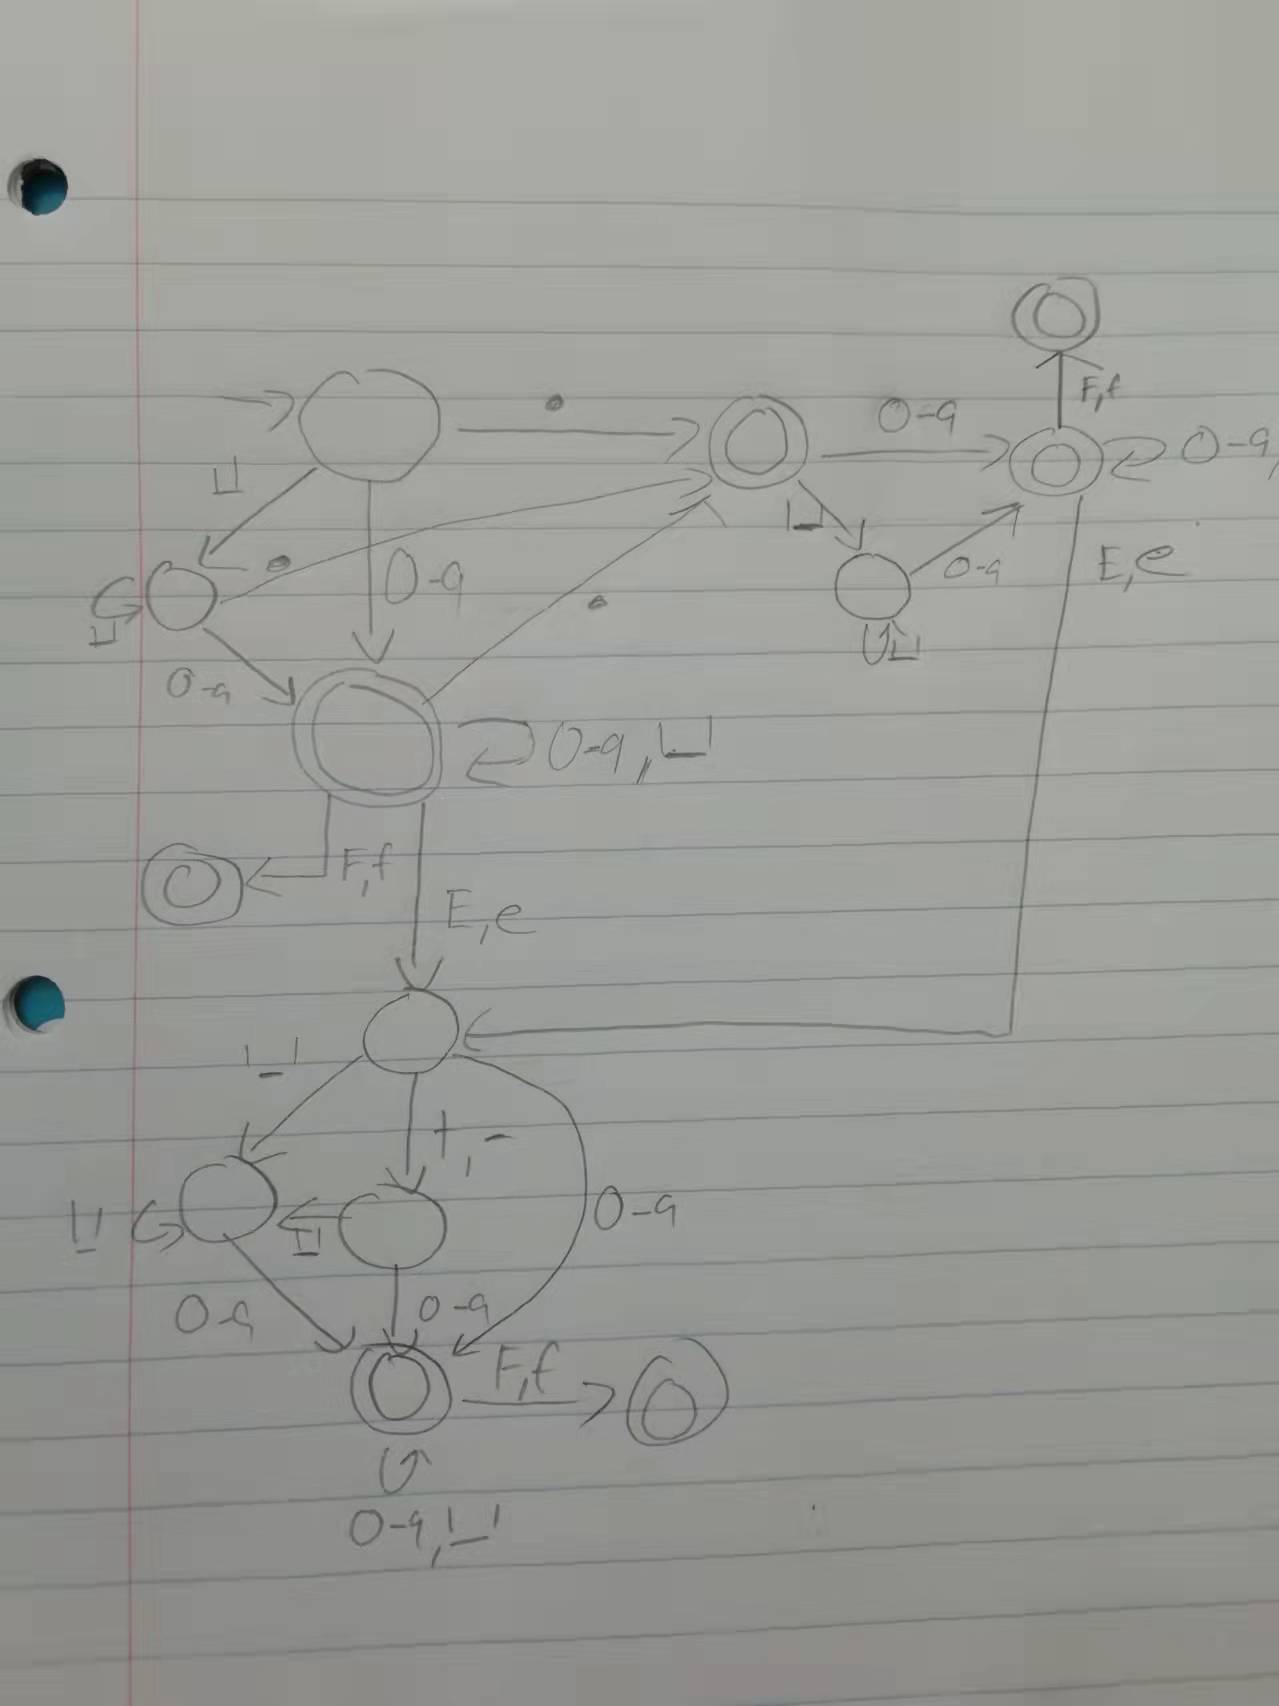 F,f
.
0-9
0-9,
⊔
.
0-9
⊔
0-9
E,e
⊔
.
⊔
0-9
0-9,⊔
F,f
E,e
⊔
+,-
0-9
⊔
⊔
0-9
0-9
F,f
0-9,⊔